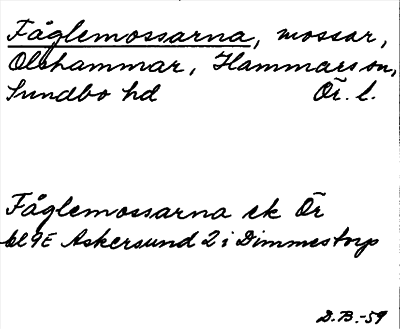 Fåglemossarna, mossar,
Olshammar, Hammars sn,
Sundbo hd Ör. l.
Fåglemossarna ek Ör
bl 9E Askersund 2 i Dimmestorp
D.B.-59